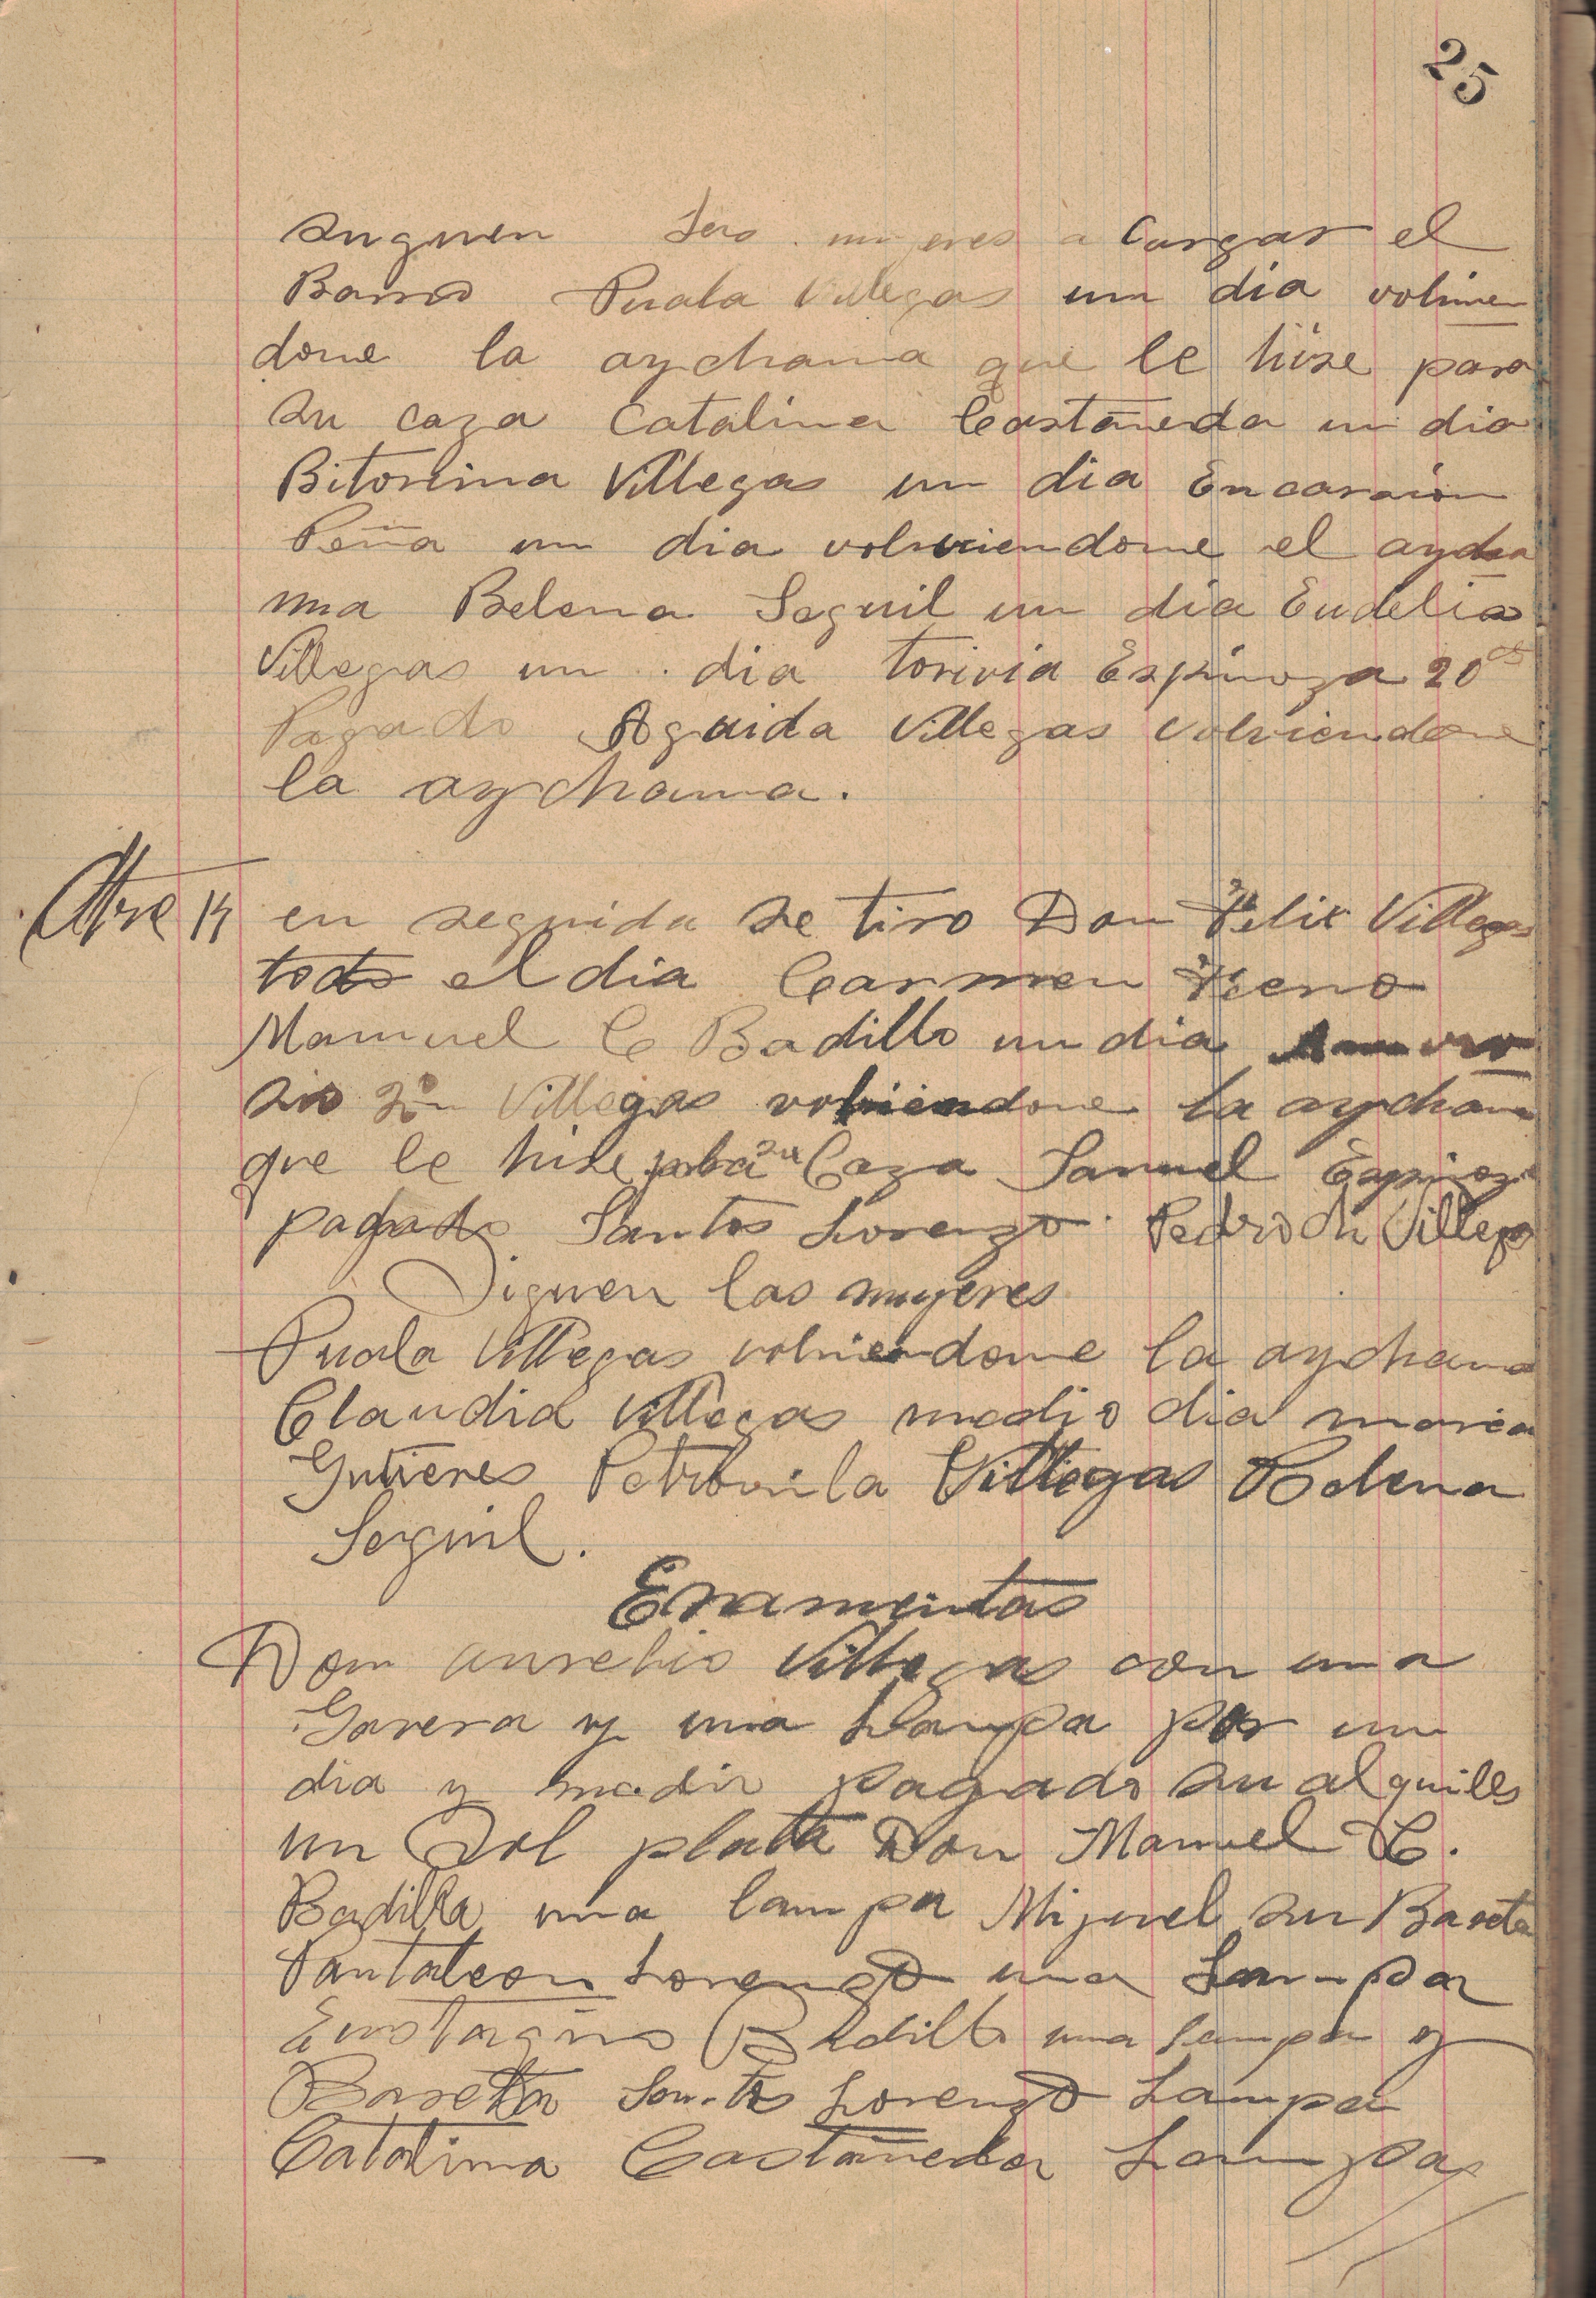 25
Siguen las mujeres a Cargar el
Barro Puala Villegas un dia volvien
dome la aychama que le hise para
su caza Catalina Castañeda un dia
Bitorina Villegas un dia Encarnion
Peña un dia volviendome el aycha
ma Belena Seguil un dia Eudelia
Villegas un dia torivia Espinoza 20
Pagado Aguida Villegas volviendome
la aychama.
14 en seguida se tiro Don Felix Villegas
todo el dia Carmen
Manuel C Badillo un dia
sio 2º Villegas volviendome la aychama
que le hise para su Caza Samuel Espinoza
pagado Santos Lorenzo Pedro Villegas
Siguen las mujeres
Puala Villegas volviendome la aychama
Claudia Villegas medio dia maria
Gutieres Petronila Villegas Belena
Seguil.
Eramientas
Don aurelio Villegas con una
Gavera y una Lampa por un
dia y medio pagado su alquiles
un Sol plata Don Manuel C.
Badilla una lampa Miguel su Bareta
Pantaleon Lorenzo una Lampa
Badillo una lampa y
Bareta Santos Lorenzo Lampa
Catalina Castañeda Lampa